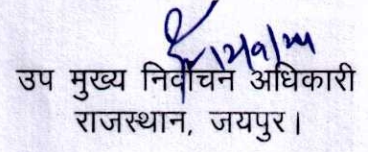 उप मुख्य निर्वाचन अधिकारी
राजस्थान, जयपुर।